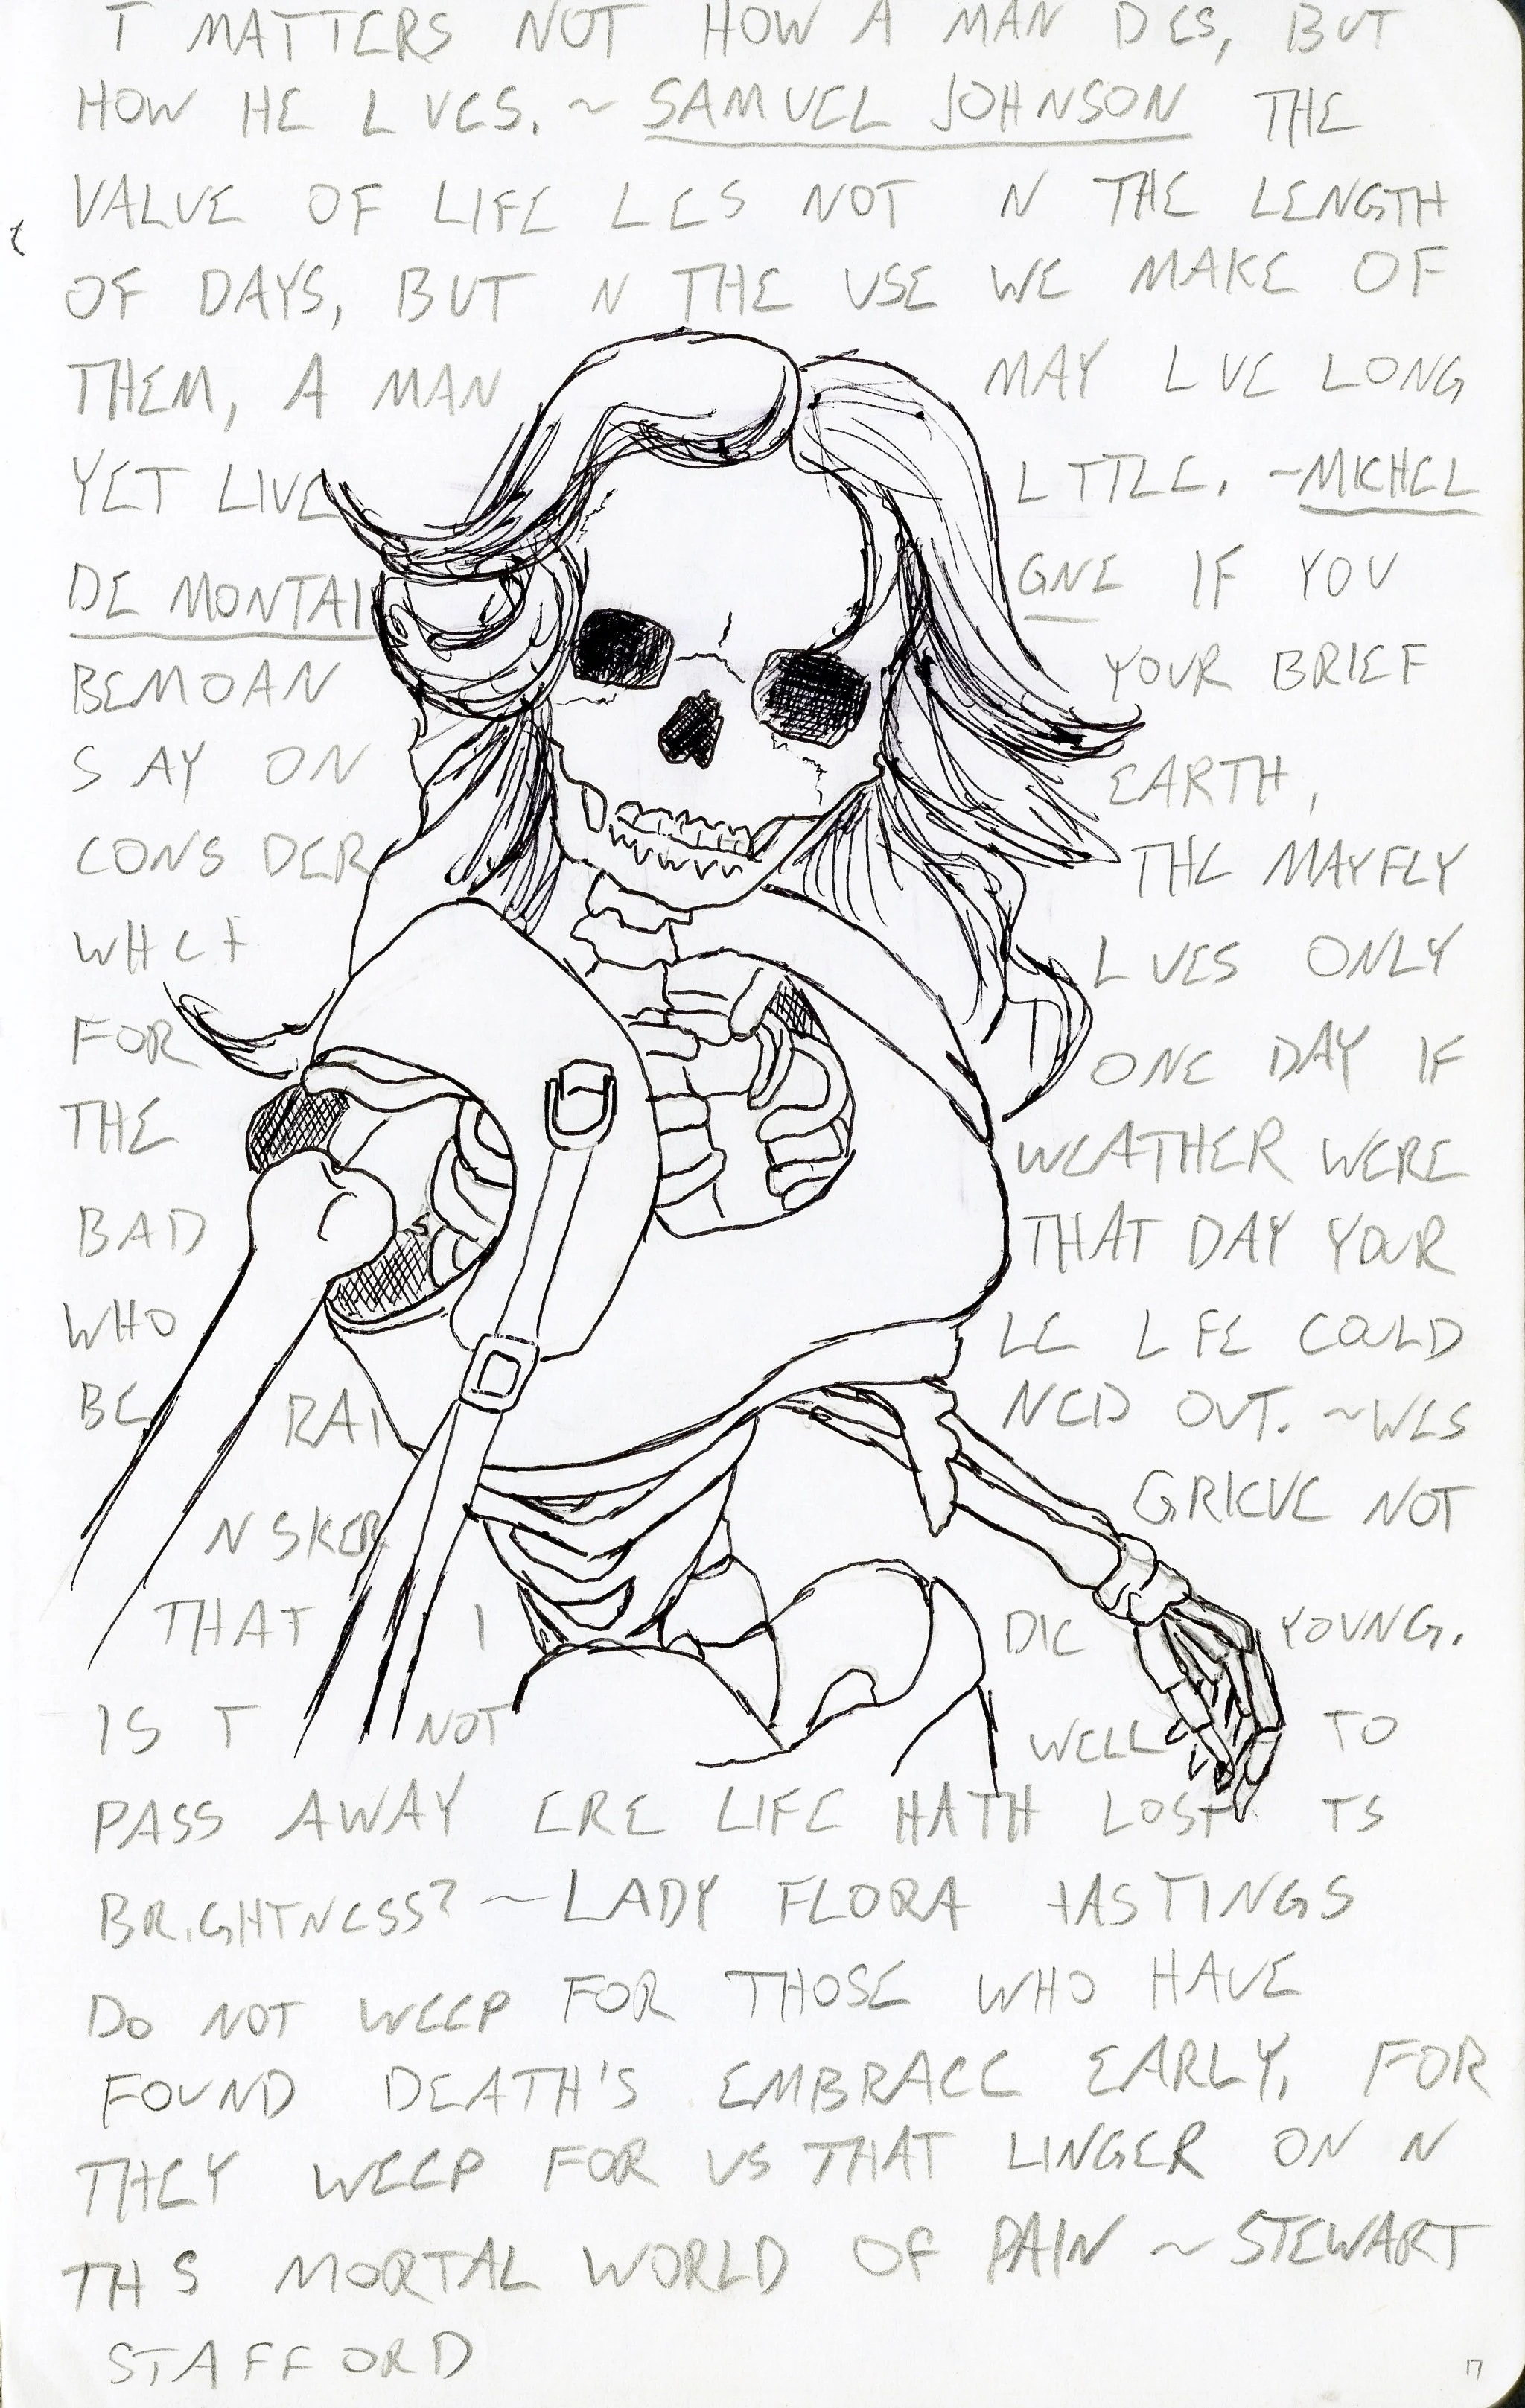 T MATTERS NOT HOW A MAN D ES, BUT
HOW HE L VES. ~ SAMUEL JOHNSON THE
VALUE OF LIFE L ES NOT N THE LENGTH
OF DAYS, BUT N THE USE WE MAKE OF
THEM, A MAN MAY L VE LONG
YET LIVE L TTLE. ~MICHEL
DE MONTAI GNE IF YOU
BEMOAN YOUR BRIEF
S AY ON EARTH,
CONS DER THE MAYFLY
WH CH L VES ONLY
FOR ONE DAY IF
THE WEATHER WERE
BAD THAT DAY YOUR
WHO LE L FE COULD
BE RAI NED OUT. ~WES
N SKER GRIEVE NOT
THAT I DIE YOUNG.
IS T NOT WELL TO
PASS AWAY ERE LIFE HATH LOST TS
BRIGHTNESS? ~LADY FLORA HASTINGS
DO NOT WEEP FOR THOSE WHO HAVE
FOUND DEATH'S EMBRACE EARLY, FOR
THEY WEEP FOR US THAT LINGER ON N
TH S MORTAL WORLD OF PAIN ~ STEWART
STAFFORD
17